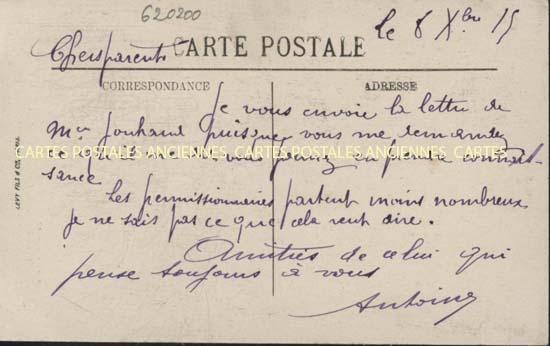 620200
le 8 Xbre 15
Chers parents
CARTE POSTALE
CORRESPONDANCE
ADRESSE
Je vous envoie la lettre de
Mr Jouhaud puisque vous me demandez
ce qu'il me dit vous pouvez en prendre connais-
sance
CARTES POSTALES ANCIENNES CARTES POSTALES ANCIENNES
Les permissionnaires partent moins nombreux
je ne sais pas ce que cela veut dire.
Amitiés de celui qui
pense toujours à vous
Antoine
LEVY FILS & Co